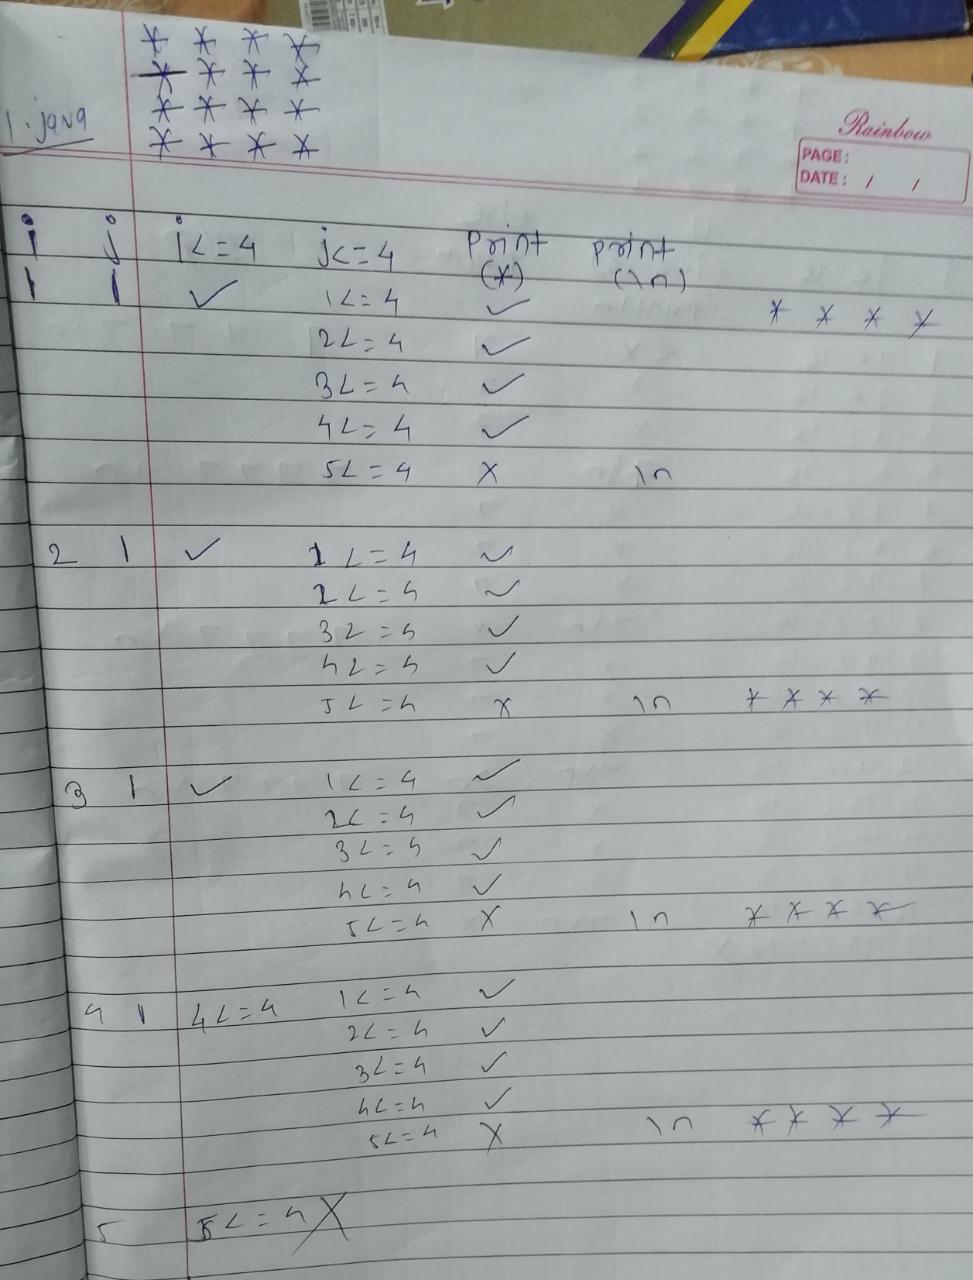 * * * *
* * * *
* * * *
* * * *
1. java
Rainbow
PAGE:
DATE: / /
i j i<=4 j<=4 print (*) print (ln)
1 1 ✓ 1<=4 ✓ * * * *
2<=4 ✓
3<=4 ✓
4<=4 ✓
5<=4 × ln
2 1 ✓ 1<=4 ✓
2<=4 ✓
3<=4 ✓
4<=4 ✓
5<=4 × ln * * * *
3 1 ✓ 1<=4 ✓
2<=4 ✓
3<=4 ✓
4<=4 ✓
5<=4 × ln * * * *
4 1 4<=4 1<=4 ✓
2<=4 ✓
3<=4 ✓
4<=4 ✓
5<=4 × ln * * * *
5 5<=4 ×